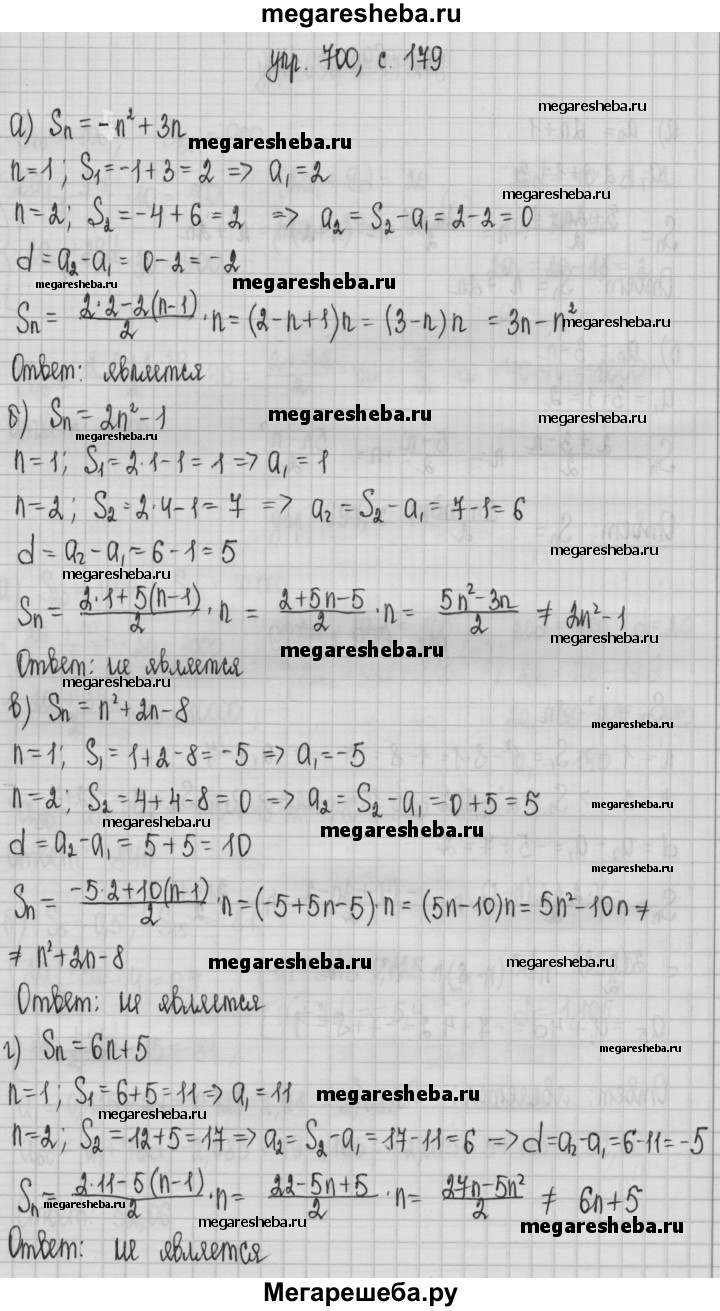 megaresheba.ru
упр. 700, с. 179
а) Sn = -n² + 3n
megaresheba.ru
megaresheba.ru
n=1; S₁ = -1+3 = 2 => a₁ = 2
megaresheba.ru
n=2; S₂ = -4+6 = 2 => a₂ = S₂ - a₁ = 2-2 = 0
d = a₂ - a₁ = 0-2 = -2
megaresheba.ru
megaresheba.ru
Sn = (2·2-2(n-1))/2 · n = (2-n+1)n = (3-n)n = 3n-n²
megaresheba.ru
Ответ: является
б) Sn = 2n² - 1
megaresheba.ru
megaresheba.ru
megaresheba.ru
n=1; S₁ = 2·1-1 = 1 => a₁ = 1
n=2; S₂ = 2·4-1 = 7 => a₂ = S₂ - a₁ = 7-1 = 6
megaresheba.ru
d = a₂ - a₁ = 6-1 = 5
megaresheba.ru
megaresheba.ru
Sn = (2·1+5(n-1))/2 · n = (2+5n-5)/2 · n = (5n²-3n)/2 ≠ 2n²-1
megaresheba.ru
Ответ: не является
megaresheba.ru
megaresheba.ru
в) Sn = n² + 2n - 8
megaresheba.ru
n=1; S₁ = 1+2-8 = -5 => a₁ = -5
n=2; S₂ = 4+4-8 = 0 => a₂ = S₂ - a₁ = 0+5 = 5
megaresheba.ru
megaresheba.ru
d = a₂ - a₁ = 5+5 = 10
megaresheba.ru
Sn = (-5·2+10(n-1))/2 · n = (-5+5n-5)·n = (5n-10)n = 5n²-10n ≠
≠ n²+2n-8
megaresheba.ru
megaresheba.ru
Ответ: не является
г) Sn = 6n+5
megaresheba.ru
n=1; S₁ = 6+5 = 11 => a₁ = 11
megaresheba.ru
megaresheba.ru
n=2; S₂ = 12+5 = 17 => a₂ = S₂ - a₁ = 17-11 = 6 => d = a₂ - a₁ = 6-11 = -5
megaresheba.ru
Sn = (2·11-5(n-1))/2 · n = (22-5n+5)/2 · n = (27n-5n²)/2 ≠ 6n+5
megaresheba.ru
megaresheba.ru
megaresheba.ru
Ответ: не является
Мегарешеба.ру